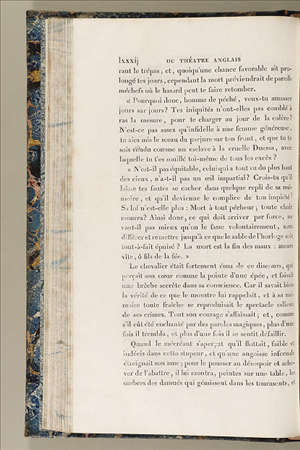 lxxxij DU THÉATRE ANGLAIS
rant le trépas; et, quoiqu'une chance favorable ait pro-
longé tes jours, cependant la mort préviendrait de pareils
méchefs où le hasard peut te faire retomber.
« Pourquoi donc, homme de péché, veux-tu amuser
jours sur jours? Tes iniquités n'ont-elles pas comblé à
ras la mesure, pour te charger au jour de la colère?
N'est-ce pas assez qu'infidelle à une femme généreuse,
tu aies mis le sceau du parjure sur ton front, et que tu te
sois vendu comme un esclave à la cruelle Duessa, avec
laquelle tu t'es souillé toi-même de tous les excès?
« N'est-il pas équitable, celui qui a tout vu du plus haut
des cieux, n'a-t-il pas un œil impartial? Crois-tu qu'il
laisse tes fautes se cacher dans quelque repli de sa mé-
moire, et qu'il devienne le complice de ton impiété?
Sa loi n'est-elle plus: Mort à tout pécheur; toute chair
mourra? Ainsi donc, ce qui doit arriver par force, ne
vaut-il pas mieux qu'on le fasse volontairement, sans
différer et remettre jusqu'à ce que le sable de l'horloge soit
tout-à-fait épuisé? La mort est la fin des maux: meurs
vite, ô fils de la fée. »
Le chevalier était fortement ému de ce discours, qui
perçait son cœur comme la pointe d'une épée, et faisait
une brèche secrète dans sa conscience. Car il savait bien
la vérité de ce que le monstre lui rappelait, et à sa mé-
moire toute fraîche se reproduisait le spectacle odieux
de ses crimes. Tout son courage s'affaissait; et, comme
s'il eût été enchanté par des paroles magiques, plus d'une
fois il trembla, et plus d'une fois il se sentit défaillir.
Quand le mécréant s'aperçut qu'il flottait, faible et
indécis dans cette stupeur, et qu'une angoisse infernale
étreignait son ame; pour le pousser au désespoir et ache-
ver de l'abattre, il lui montra, peintes sur une table, les
ombres des damnés qui gémissent dans les tourments, et